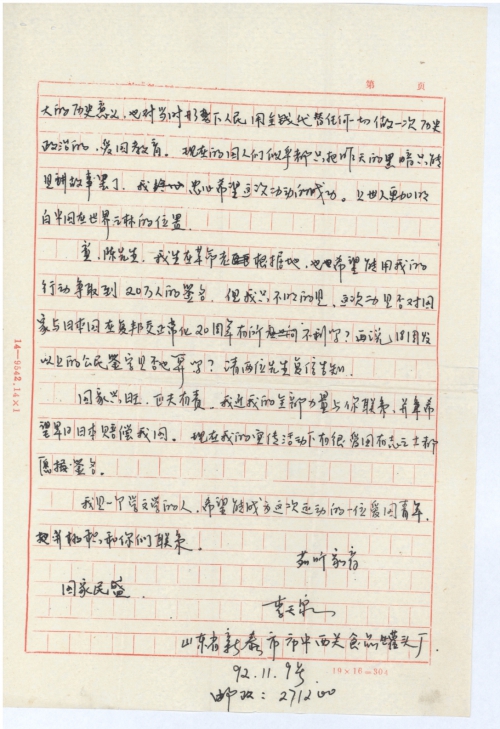 第 页
大的历史意义,也对当时形势下人民用金钱代替任何一切做一次历史
政治的,爱国教育。现在的国人们似乎新只把昨天的黑暗只能
是讲故事罢了,我忠心希望这次活动的成功。让世人更加明
白中国在世界之林的位置。
童、陈先生,我生在革命老根据地,也希望能用我的
行动争取到20万人的签名。但我只不明的是,这次活动是否对国
家与日本国在复邦交正常化20周年有所不利乎?再说,18周岁
以上的公民签字是否也算乎?请两位先生复信告知。
国家兴旺,匹夫有责。我近我的全部力量与你联系,并希
望早日日本赔偿我国。现在我的宣传活动下有很爱国有志之士都
愿据签名。
我是一个学文学的人,希望能成为这次运动的一位爱国青年,
把并积极和你们联系。
敬听家音
国家民盛
山东省新泰市市中西关食品罐头厂
92.11.9号
邮政:271200
14—9542.14×1
19×16=304